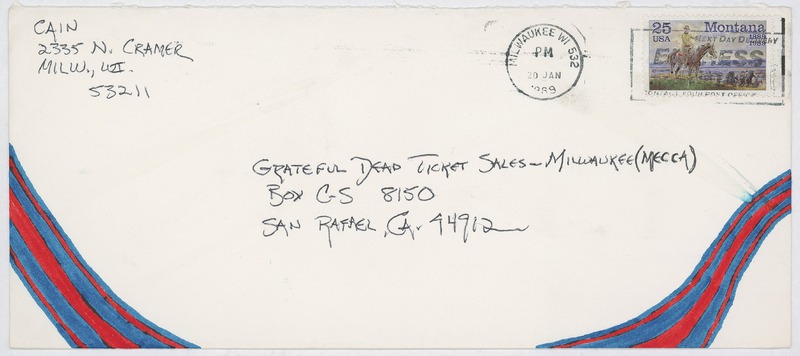 CAIN
2335 N. CRAMER
MILW., WI.
53211
MILWAUKEE WI 532
PM
20 JAN
1989
25 USA
Montana
1889
1989
NEXT DAY DELIVERY
EXPRESS
CONTACT YOUR POST OFFICE
GRATEFUL DEAD TICKET SALES - MILWAUKEE (MECCA)
BOX C-S 8150
SAN RAFAEL, CA. 94912